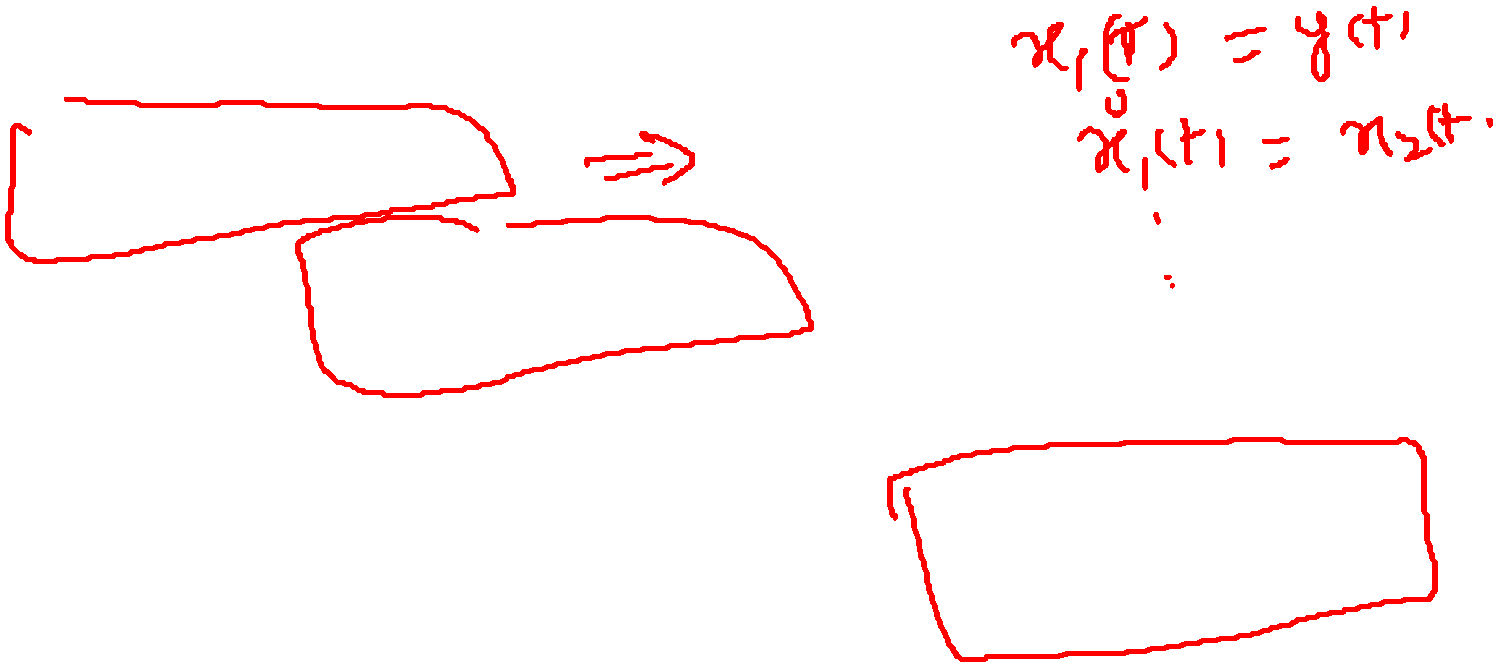 x₁(t) = y(t)
ẋ₁(t) = x₂(t.
: